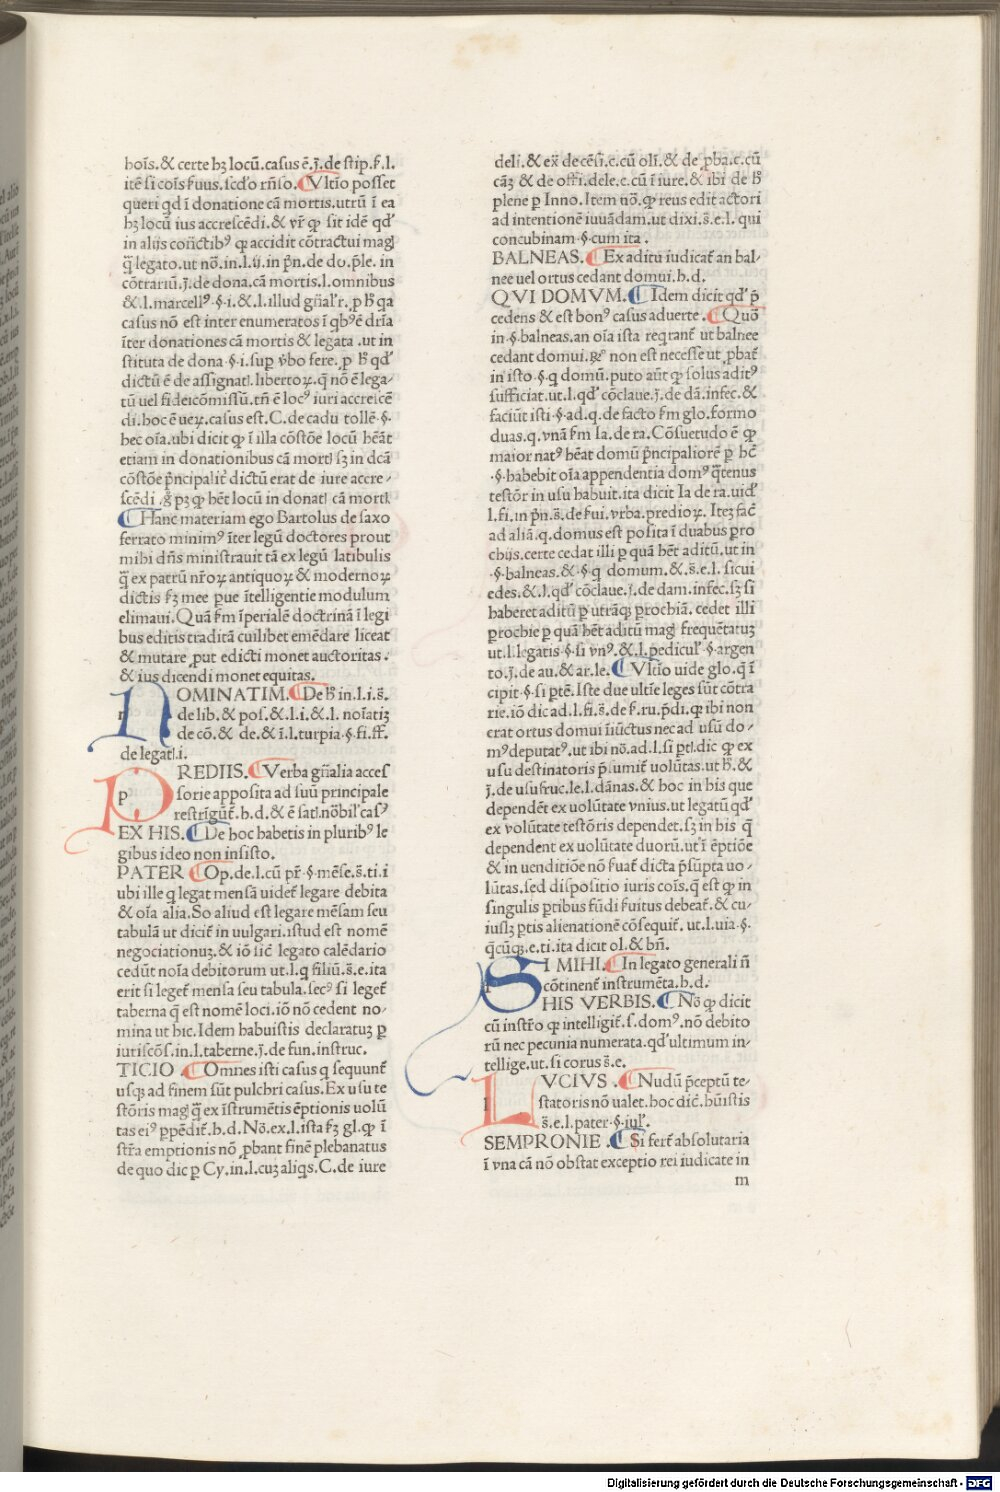 hoīs. & certe hꝫ locū. casus ē. ȷ̄. de stip. f. l.
itē si cois fuus. scd̕o rn̄so. Vltīo posset
queri qd̕ ī donatione cā mortis. utrū ī ea
hꝫ locū ius accrescēdi. & vr̄ ꝙ sit idē qd̕
in alijs con̄ctibꝰ ꝙ accidit cōtractui magl
q̄ legato. ut nō. in. l. ij. in pn̄. de do. ple. in
cōtrariū. ȷ̄. de dona. cā mortis. l. omnibus
& . l. marcellꝰ. §. i. & . l. illud gn̄al̕r. ꝓ hº qa
casus nō est inter enumeratos ī qbꝰ ē dr̄ia
īter donationes cā mortis & legata . ut in
stituta de dona . §. i. sup v̄bo fere. ꝓ hº qd̕
dictū ē de assignatl. libertoꝝ. q̄ nō ē lega⸗
tū uel fideicōmissū. tn̄ ē locꝰ iuri accrescē
di. hoc ē ueꝝ. casus est. C. de cadu tollē . §.
hec oīa. ubi dicit ꝙ ī illa cōstōe locū hēāt
etiam in donationibus cā mortl sꝫ in dcā
cōstōe pn̄cipalit̕ dictū erat de iure accre⸗
scēdi . g̊ pꝫ ꝙ hēt locū in donatl cā mortl.
Hanc materiam ego Bartolus de saxo
ferrato minimꝰ īter legū doctores prout
mihi dn̄s ministrauit tā ex legū latibulis
q̄ ex patrū nr̄oꝝ antiquoꝝ & modernoꝝ
dictis fꝫ mee ꝑue ītelligentie modulum
elimaui. Quā fm īperialē doctrinā ī legi
bus editis traditā cuilibet emēdare liceat
& mutare ꝓut edicti monet auctoritas .
& ius dicendi monet equitas.
NOMINATIM. De hº in. l. i. s̄.
de lib. & pos. & . l. i. & . l. noīatiꝫ
de cō. & de. & ī. l. turpia . §. fi. ff.
de legatl. i.
PREDIIS. Verba gn̄alia acces
sorie apposita ad suū principale
restrīgūt̄. h. d. & ē satl. nōbil̕ casꝰ
EX HIS. De hoc habetis in pluribꝰ le
gibus ideo non insisto.
PATER Op. de. l. cū pr̄ . §. mēse. s̄. ti. i
ubi ille q legat mensā uidet̄ legare debita
& oīa alia. So aliud est legare mēsam seu
tabulā ut dicit̄ in uulgari. istud est nomē
negociationuꝫ. & iō sic̄ legato calēdario
cedūt noīa debitorum ut. l. q filiū. s̄. e. ita
erit si leget̄ mensa seu tabula. secꝰ si leget̄
taberna q̄ est nomē loci. iō nō cedent no⸗
mina ut hic. Idem habuistis declaratuꝫ ꝑ
iuriscōs. in. l. taberne. ȷ̄. de fun. instruc.
TICIO . Omnes isti casus q sequunt̄
usqꝫ ad finem sūt pulchri casus. Ex usu te
stōris magl q̄ ex īstrumētis ēptionis uolū
tas eiꝰ ꝑpēdit̄. h. d. Nō. ex. l. ista fꝫ gl. ꝙ ī
str̄a emptionis nō ꝓbant finē plebanatus
de quo dic ꝑ Cy. in. l. cuꝫ aliqs. C. de iure
deli. & ex̄ de cēsi. c. cū oli. & de ꝓba. c. cū
cāꝫ & de offi. dele. c. cū ī iure. & ibi de hº
plene ꝑ Inno. Item nō. ꝙ reus edit actori
ad intentionē iuuādam. ut dixi. s̄. e. l. qui
concubinam . §. cum ita .
BALNEAS. Ex aditu iudicat̄ an bal⸗
nee uel ortus cedant domui. h. d.
QVI DOMVM. Idem dicit qd̕ p̄
cedens & est bonꝰ casus aduerte . Quō
in . §. balneas. an oīa ista reqrant̄ ut balnee
cedant domui. ꝶº non est necesse ut ꝓbat̄
in isto . §. q domū. puto aūt ꝙ solus aditꝰ
sufficiat. ut. l. qd̕ cōclaue. ȷ̄. de dā. infec. &
faciūt isti . §. ad. q. de facto fm glo. formo
duas. q. vnā fm Ia. de ra. Cōsuetudo ē ꝙ
maior natꝰ hēat domū pn̄cipaliorē ꝑ hc̄
. §. habebit oīa appendentia domꝰ q̄tenus
testōr in usu habuit. ita dicit Ia de ra. uid̕
l. fi. in pn̄. s̄. de fui. vrba. predioꝝ. Iteꝫ fac̄
ad aliā. q. domus est posita ī duabus ꝑro
chijs. certe cedat illi ꝑ quā hēt aditū. ut in
. §. balneas. & . §. q domum. & . s̄. e. l. sicui
edes. & . l. qd̕ cōclaue. ȷ̄. de dam. infec. sꝫ si
haberet aditū ꝑ utrāqꝫ ꝑrochiā. cedet illi
ꝑrochie ꝑ quā hēt aditū magl frequētatuꝫ
ut. l. legatis . §. si vnꝰ. & . l. pedicul̕ . §. argen
to. ȷ̄. de au. & ar. le. Vltīo uide glo. q̄ ī
cipit . §. si ꝑtē. Iste due ultīe leges sūt cōtra
rie. iō dic ad. l. fi. s̄. de f. ru. p̄di. ꝙ ibi non
erat ortus domui īiūctus nec ad usū do⸗
mꝰ deputatꝰ. ut ibi nō. ad. l. si ꝑtl. dic ꝙ ex
usu destinatoris p̄sumit̄ uolūtas. ut hº. &
ȷ̄. de usufruc. le. l. dānas. & hoc in his que
dependēt ex uolūtate vnius. ut legatū qd̕
ex volūtate testōris dependet. sꝫ in his q̄
dependent ex uolūtate duorū. ut ī ēptiōe
& in uenditiōe nō fuat̄ dicta p̄sūpta uo⸗
lūtas. sed dispositio iuris cois. q̄ est ꝙ in
singulis ꝑtibus fūdi fuitus debeat̄. & cu⸗
iuslꝫ ꝑtis alienationē cōsequit̄. ut. l. uia . §.
q̄cūqꝫ. e. ti. ita dicit ol. & bn̄.
SI MIHI. In legato generali n̄
cōtinent̄ instrumēta. h. d.
HIS VERBIS. Nō ꝙ dicit
cū instr̄o ꝙ intelligit̄. s. domꝰ. nō debito
rū nec pecunia numerata. qd̕ ultimum in⸗
tellige. ut. si corus s̄. e.
LVCIVS . Nudū p̄ceptū te⸗
statoris nō ualet. hoc dic̄. hūistis
s̄. e. l. pater . §. iul̕.
SEMPRONIE . Si fert̄ absolutaria
ī vna cā nō obstat exceptio rei iudicate in
m
Digitalisierung gefördert durch die Deutsche Forschungsgemeinschaft - DFG